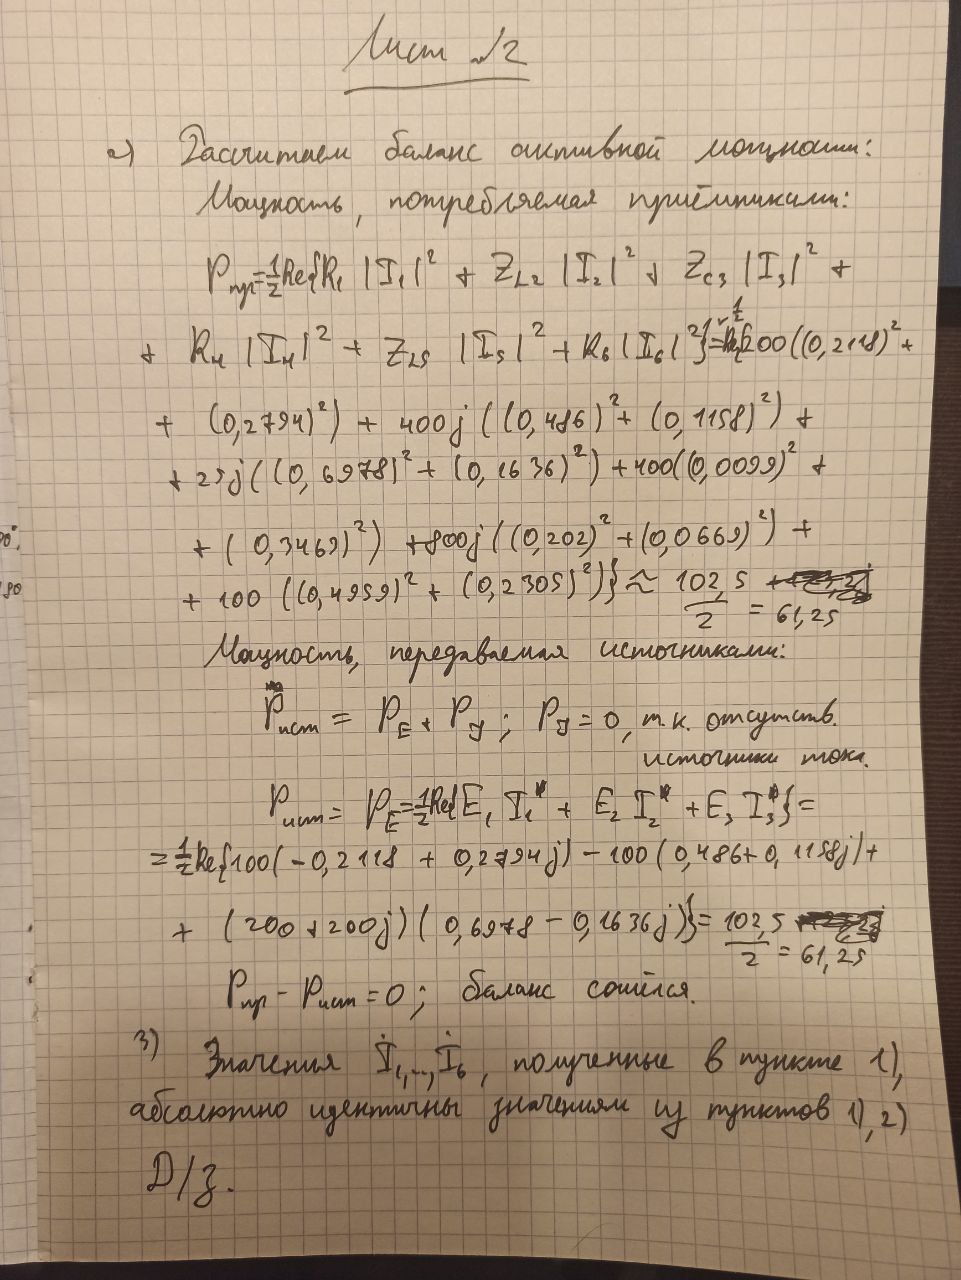 Лист №2
2) Рассчитаем баланс активной мощности:
Мощность, потребляемая приёмниками:
Pпр=1/2Re{R₁ |I₁|² + Z_L2 |I₂|² + Z_C3 |I₃|² +
+ R₄ |I₄|² + Z_L5 |I₅|² + R₆ |I₆|²}=1/2Re{200((0,2118)² +
+ (0,2794)²) + 400j((0,486)² + (0,1158)²) +
+ 25j((0,6978)² + (0,1636)²) + 400((0,0099)² +
+ (0,3469)²) + 800j((0,202)² + (0,0669)²) +
+ 100 ((0,4959)² + (0,2305)²)} ≈ 102,5/2 = 61,25
Мощность, передаваемая источниками:
Pист = P_E + P_J ; P_J = 0, т.к. отсутств.
источники тока.
Pист = P_E=1/2Re{E₁ I₁* + E₂ I₂* + E₃ I₃*}=
=1/2Re{100(-0,2118 + 0,2794j) - 100(0,486+0,1158j)+
+ (200+200j)(0,6978 - 0,1636j)}= 102,5/2 = 61,25
Pпр - Pист = 0; баланс сошёлся.
3) Значения İ₁,..,İ₆, полученные в пункте 1),
абсолютно идентичны значениям из пунктов 1), 2)
Д/з.